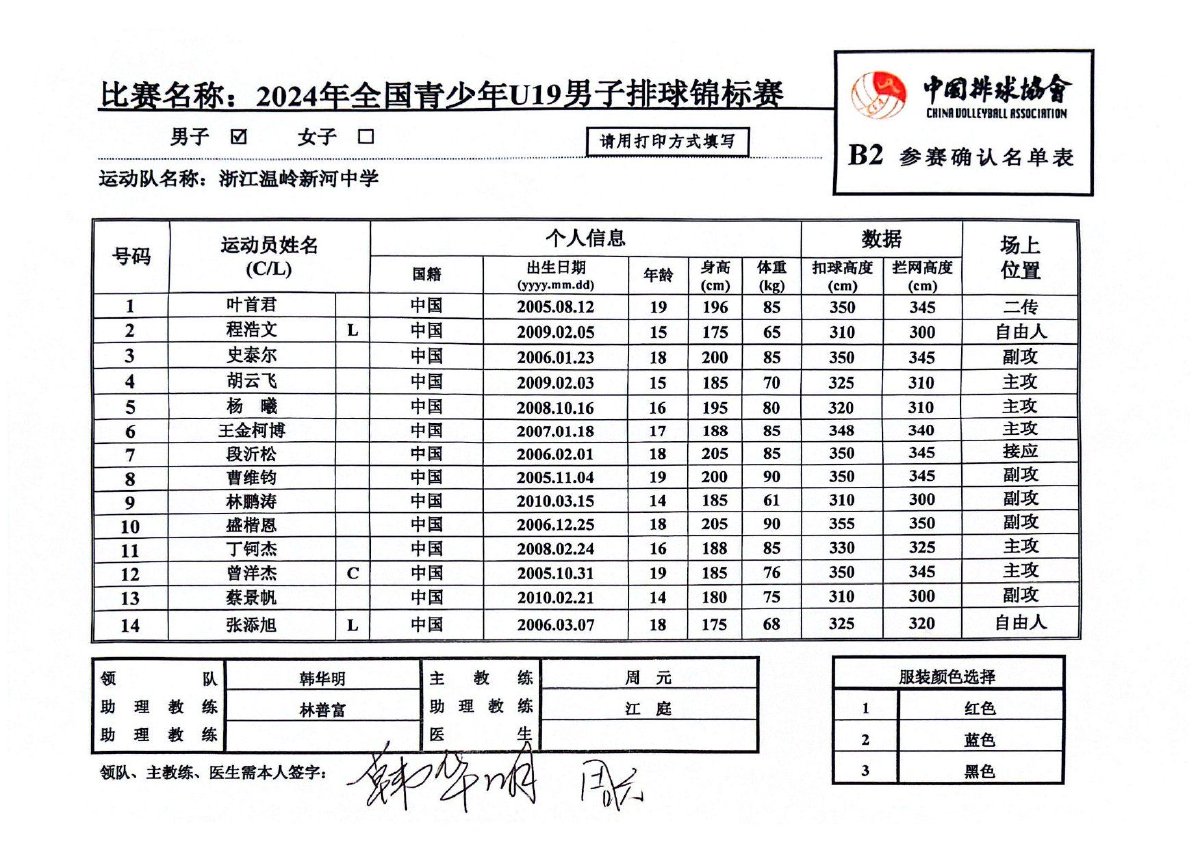 比赛名称：2024年全国青少年U19男子排球锦标赛
中国排球协会
CHINA VOLLEYBALL ASSOCIATION
男子 ☑ 女子 □ 请用打印方式填写
B2 参赛确认名单表
运动队名称：浙江温岭新河中学
号码 运动员姓名 (C/L) 个人信息 数据 场上位置
国籍 出生日期 (yyyy.mm.dd) 年龄 身高 (cm) 体重 (kg) 扣球高度 (cm) 拦网高度 (cm)
1 叶首君 中国 2005.08.12 19 196 85 350 345 二传
2 程浩文 L 中国 2009.02.05 15 175 65 310 300 自由人
3 史泰尔 中国 2006.01.23 18 200 85 350 345 副攻
4 胡云飞 中国 2009.02.03 15 185 70 325 310 主攻
5 杨 曦 中国 2008.10.16 16 195 80 320 310 主攻
6 王金柯博 中国 2007.01.18 17 188 85 348 340 主攻
7 段沂松 中国 2006.02.01 18 205 85 350 345 接应
8 曹维钧 中国 2005.11.04 19 200 90 350 345 副攻
9 林鹏涛 中国 2010.03.15 14 185 61 310 300 副攻
10 盛楷恩 中国 2006.12.25 18 205 90 355 350 副攻
11 丁钶杰 中国 2008.02.24 16 188 85 330 325 主攻
12 曾洋杰 C 中国 2005.10.31 19 185 76 350 345 主攻
13 蔡景帆 中国 2010.02.21 14 180 75 310 300 副攻
14 张添旭 L 中国 2006.03.07 18 175 68 325 320 自由人
领 队 韩华明 主 教 练 周 元
助 理 教 练 林善富 助 理 教 练 江 庭
助 理 教 练 医 生
服装颜色选择
1 红色
2 蓝色
3 黑色
领队、主教练、医生需本人签字： 韩华明 周元